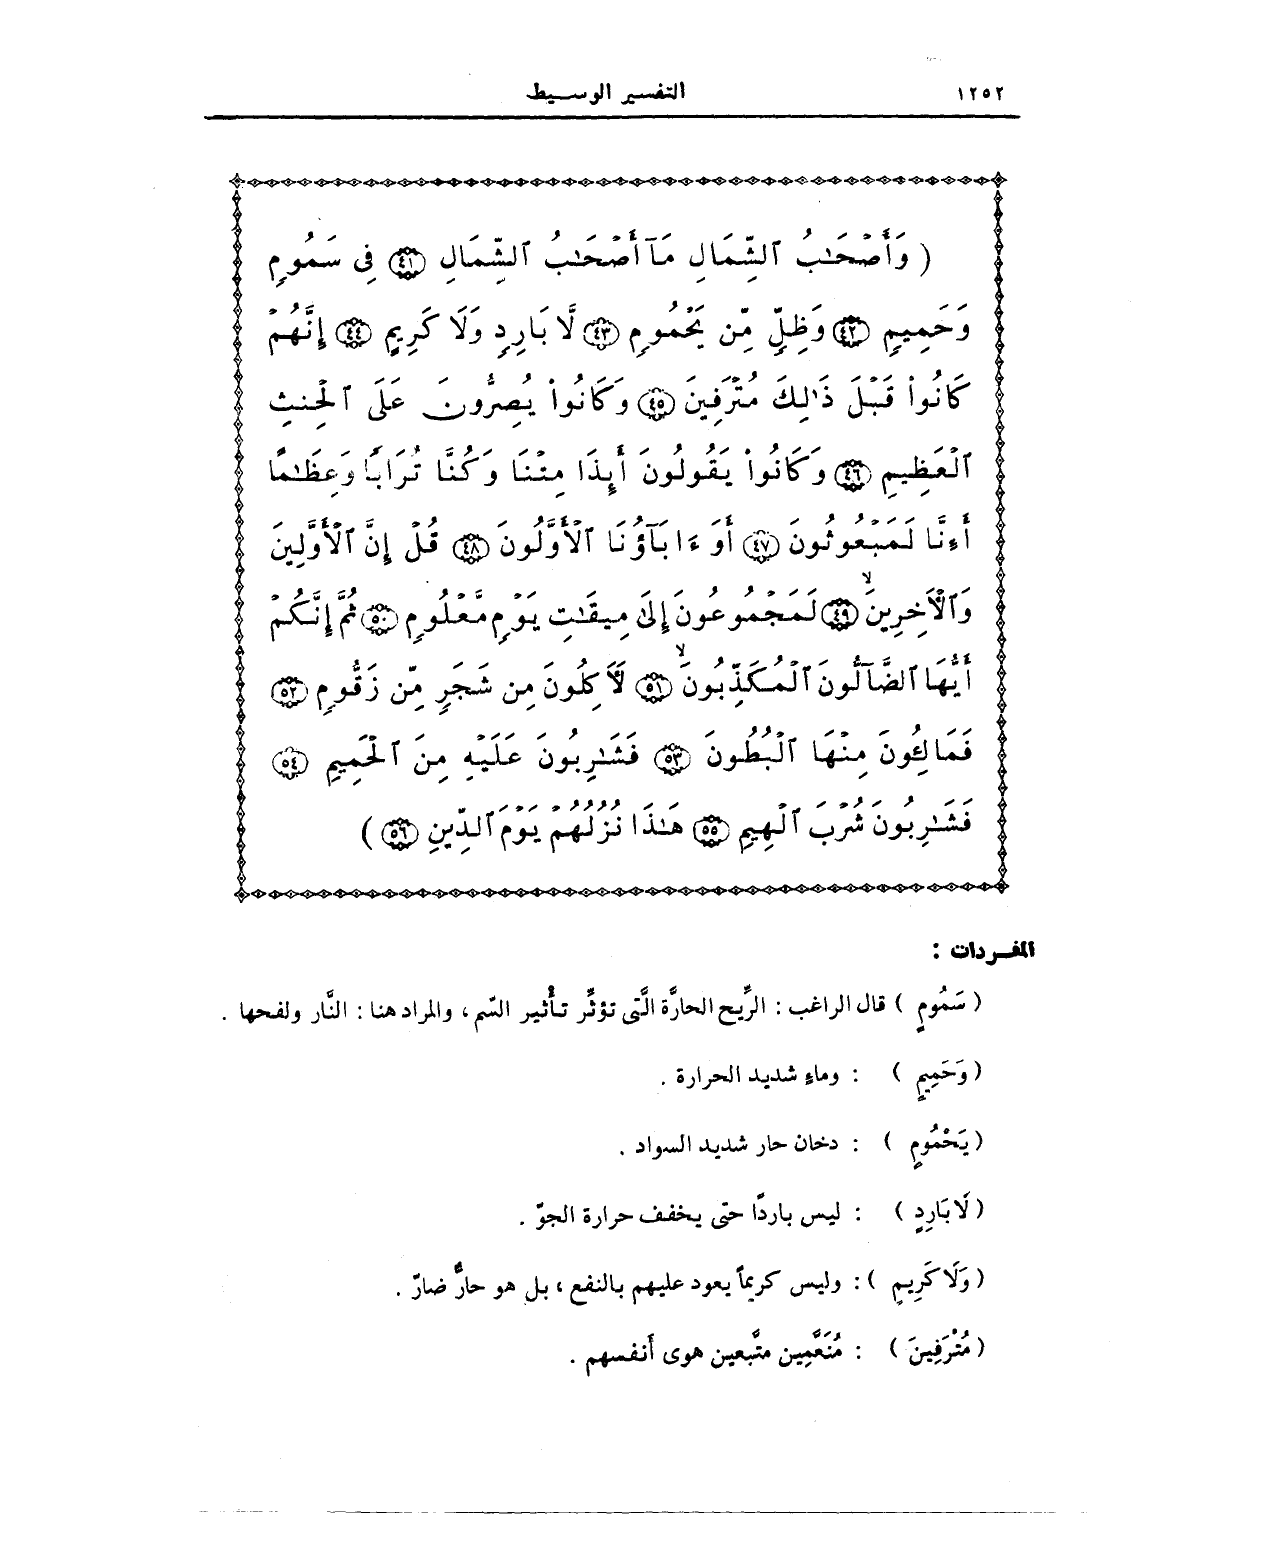 ١٢٥٢ التفسير الوسيط
( وَأَصْحَٰبُ ٱلشِّمَالِ مَآ أَصْحَٰبُ ٱلشِّمَالِ ٤١ فِى سَمُومٍ
وَحَمِيمٍ ٤٢ وَظِلٍّ مِّن يَحْمُومٍ ٤٣ لَّا بَارِدٍ وَلَا كَرِيمٍ ٤٤ إِنَّهُمْ
كَانُوا۟ قَبْلَ ذَٰلِكَ مُتْرَفِينَ ٤٥ وَكَانُوا۟ يُصِرُّونَ عَلَى ٱلْحِنثِ
ٱلْعَظِيمِ ٤٦ وَكَانُوا۟ يَقُولُونَ أَئِذَا مِتْنَا وَكُنَّا تُرَابًا وَعِظَٰمًا
أَءِنَّا لَمَبْعُوثُونَ ٤٧ أَوَ ءَابَآؤُنَا ٱلْأَوَّلُونَ ٤٨ قُلْ إِنَّ ٱلْأَوَّلِينَ
وَٱلْءَاخِرِينَ ٤٩ لَمَجْمُوعُونَ إِلَىٰ مِيقَٰتِ يَوْمٍ مَّعْلُومٍ ٥٠ ثُمَّ إِنَّكُمْ
أَيُّهَا ٱلضَّآلُّونَ ٱلْمُكَذِّبُونَ ٥١ لَءَاكِلُونَ مِن شَجَرٍ مِّن زَقُّومٍ ٥٢
فَمَالِـُٔونَ مِنْهَا ٱلْبُطُونَ ٥٣ فَشَٰرِبُونَ عَلَيْهِ مِنَ ٱلْحَمِيمِ ٥٤
فَشَٰرِبُونَ شُرْبَ ٱلْهِيمِ ٥٥ هَٰذَا نُزُلُهُمْ يَوْمَ ٱلدِّينِ ٥٦ )
المفـردات :
( سَمُومٍ ) قال الراغب : الرِّيح الحارَّة الَّتى تؤثِّر تأْثير السّم ، والمراد هنا : النَّار ولفحها .
( وَحَمِيمٍ ) : وماءٍ شديد الحرارة .
( يَحْمُومٍ ) : دخان حار شديد السواد .
( لَا بَارِدٍ ) : ليس باردًا حتى يخفف حرارة الجوّ .
( وَلَا كَرِيمٍ ) : وليس كريماً يعود عليهم بالنفع ، بل هو حارٌّ ضارّ .
( مُتْرَفِينَ ) : مُنَعَّمِين متَّبعين هوى أَنفسهم .